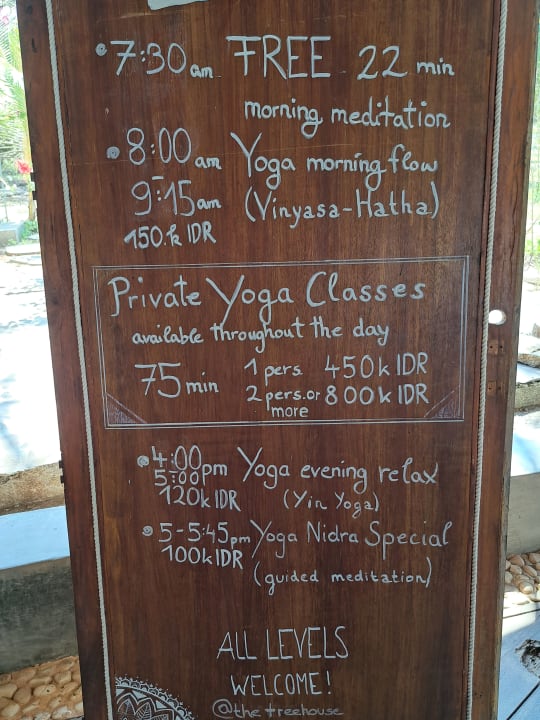 7:30 am FREE 22 min
morning meditation
8:00 am Yoga morning flow
9:15 am (Vinyasa-Hatha)
150.k IDR
Private Yoga Classes
available throughout the day
75 min 1 pers. 450k IDR
2 pers. or 800k IDR
more
4:00 pm Yoga evening relax
5:00
120k IDR (Yin Yoga)
5-5:45 pm Yoga Nidra Special
100k IDR
(guided meditation)
ALL LEVELS
WELCOME!
@the treehouse